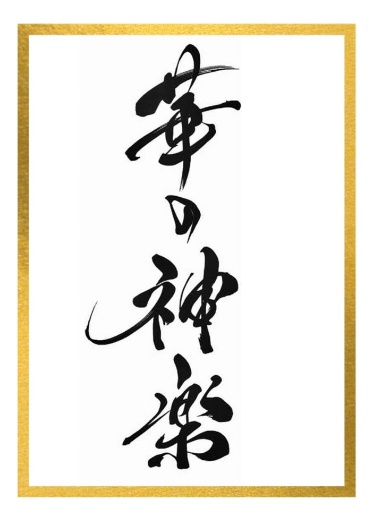 華の神楽